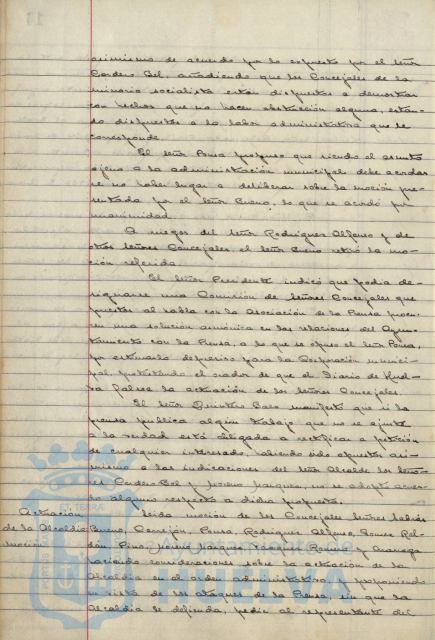 asimismo de acuerdo por lo expuesto por el señor
Cordero Bel, añadiendo que los Concejales de la
minoria socialista estan dispuestos a demostrar
con hechos que no hacen obstrucción alguna, estan-
do dispuestos a la labor administrativa que le
corresponde
El señor Ponce propuso que siendo el asunto
ajeno a la administración municipal debe acordar
se no haber lugar a deliberar sobre la moción pre-
sentada por el señor Bueno, lo que se acordó por
unanimidad.
A ruegos del señor Rodriguez Alfonso y de
otros señores Concejales, el señor Bueno retiró la mo-
ción referida.
El señor Presidente indicó que podia de-
signarse una Comisión de señores Concejales que
puestos al habla con la Asociación de la Prensa procu-
ren una solución armónica en las relaciones del Ayun-
tamiento con la Prensa, a lo que se opuso el señor Ponce,
por estimarlo depresivo para la Corporación munici-
pal, protestando el orador de que el Diario de Huel-
va falsee la actuación de los señores Concejales.
El señor Quintero Baez manifestó que si la
prensa publica algun trabajo que no se ajuste
a la verdad está obligada a rectificar a petición
de cualquier interesado, habiendose opuestos asi-
mismo a las indicaciones del señor Alcalde los seño-
res Cordero Bel y Moreno Marquez, no se adoptó acuer-
do alguno respecto a dicha propuesta.
Actuación leida moción de los Concejales señores
de la Alcaldia Bueno, Cerrejón, Ponce, Rodriguez Alfonso, Gomez Rol-
moción dán, Pino, Moreno Marquez, Vazquez
haciendo consideraciones sobre la actuación de la
Alcaldia en el orden administrativo, y proponiendo
en vista de los ataques de la Prensa, sin que la
Alcaldia le defienda, pedir al representante del